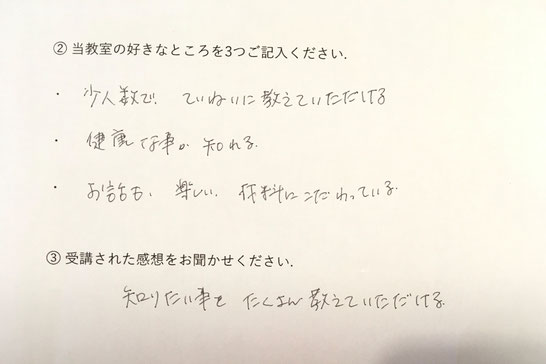 ② 当教室の好きなところを3つご記入ください.
・ 少人数で、ていねいに教えていただける
・ 健康な事が知れる.
・ お話も、楽しい、材料にこだわっている.
③ 受講された感想をお聞かせください.
知りたい事をたくさん教えていただける.